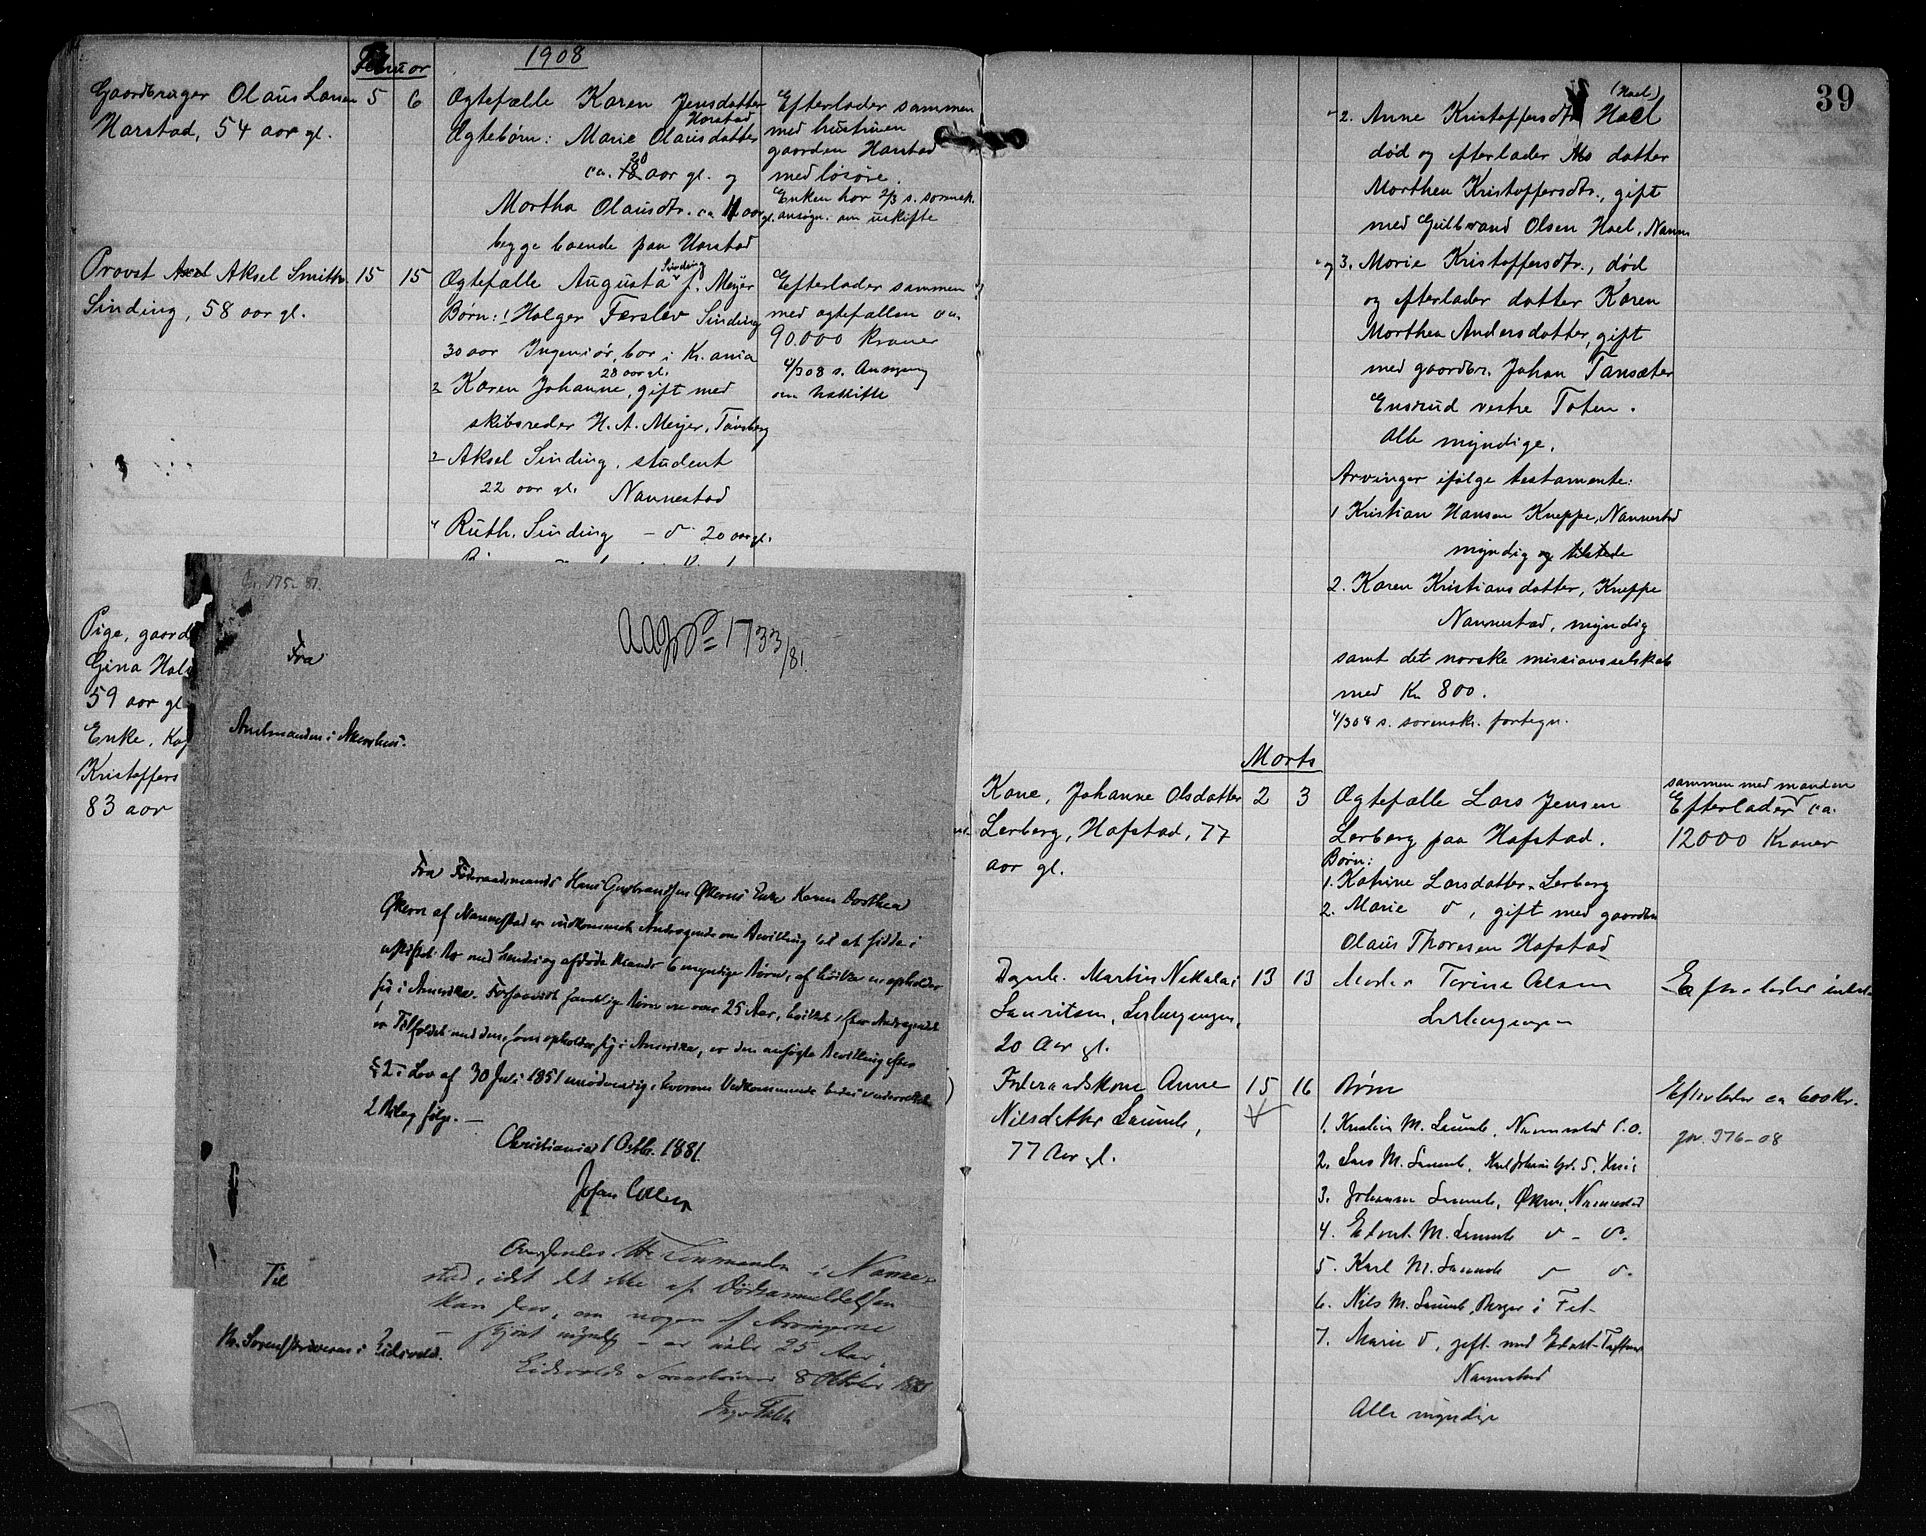 1908
Februar
Gaardbruger Olaus Larsen 5 6
Harstad, 54 aar gl.
Ægtefælle Karen Jensdatter
Harstad
Ægtebørn: Marie Olausdatter
20
ca. 18 aar gl. og
Martha Olausdtr. ca 11 aar gl.
begge boende paa Harstad
Efterlader sammen
med hustruen
gaarden Harstad
med løsøre.
Enken har 2/3 s. sorensk.
ansøgn. om uskifte
Provst Axel Aksel Smith 15 15
Sinding, 58 aar gl.
Sinding
Ægtefælle Augusta f. Meyer
Børn: 1 Holger Færslev Sinding
30 aar Ingeniør, bor i Kr.ania
28 aar gl.
2 Karen Johanne, gift med
skibsreder H. A. Meyer, Tønsberg
3 Aksel Sinding, student
22 aar gl. Nannestad
4 Ruth Sinding - d - 20 aar gl.
Efterlader sammen
med ægtefællen ca.
90.000 kroner
4/3 08 s. Ansøgning
om uskifte
Pige, gaard
Gina Hol
59 aar gl
Enke, Ka
Kristoffers
83 aar
G. 775-81.
1733/81.
Fra
Amtmanden i Akershus.
Fra Føderaadsmand Hans Gulbrandsen Økerns Enke Karen Dorthea
Økern af Nannestad er indkommet Andragende om Bevilling til at sidde i
uskiftet Bo med hendes og afdøde Mands 6 myndige Børn, af hvilke en opholder
sig i Amerika. Forsaavidt samtlige Børn ere over 25 Aar, hvilket ifølge Andragendet
er Tilfældet med den, som opholder sig i Amerika, er den ansøgte Bevilling efter
§ 2 i Lov af 30 Juli 1851 unødvendig, hvorom Vedkommende bedes underrettet.
2 Bilag følge. —
Christiania 1 Octbr. 1881.
Johan Collett
Til
Hr. Sorenskriveren i Eidsvold.
Hr. Lensmanden i Nanne-
stad, idet det ikke af Dødsanmeldelsen
kan sees, om nogen af Arvingerne
– skjønt myndig – er under 25 Aar.
Eidsvolds Sorenskriveri 8 Oktober 1881
39
(Hoel)
2. Anne Kristoffersdtr. Hoel
død og efterlader datter
Marthea Kristoffersdtr., gift
med Gulbrand Olsen Hoel, Nann.
og 3. Marie Kristoffersdtr., død
og efterlader datter Karen
Marthea Andersdatter, gift
med gaardbr. Johan Tansæter
Ensrud vestre Toten.
Alle myndige.
Arvinger ifølge testamente:
1 Kristian Hansen Kneppe, Nannestad
myndig og tilstede
2. Karen Kristiansdatter, Kneppe
Nannestad, myndig
samt det norske missionsselskab
med Kr 800.
4/3 08 s. sorensk. fortegn.
Marts
Kone, Johanne Olsdatter 2 3
Lerberg, Hafstad, 77
aar gl.
Ægtefælle Lars Jensen
Lerberg paa Hafstad.
Børn:
1. Katrine Larsdatter Lerberg
2. Marie d, gift med gaardbr.
Olaus Thoresen Hafstad
sammen med manden
Efterlader ca.
12000 Kroner
Dagarb. Martin Nikolai 13 13
Lauritsen, Lerbergengen,
20 Aar gl.
Moder Torine Olsen
Lerbergengen
Efterlader intet
Føderaadskone Anne 15 16
Nilsdatter Laumb,
77 Aar gl.
Børn
1. Kristian M. Laumb, Nannestad P.O.
2. Lars M. Laumb, Karl Johans Gd. 5, Kr.a
3. Johannes Laumb, Økern, Nannestad
4. Edvart M. Laumb d - d.
5. Karl M. Laumb d d.
6. Nils M. Laumb, Berger i Fet
7. Marie d, gift med Edvart
Nannestad
Alle myndige
Efterlader ca 600 Kr.
gr. 376-08